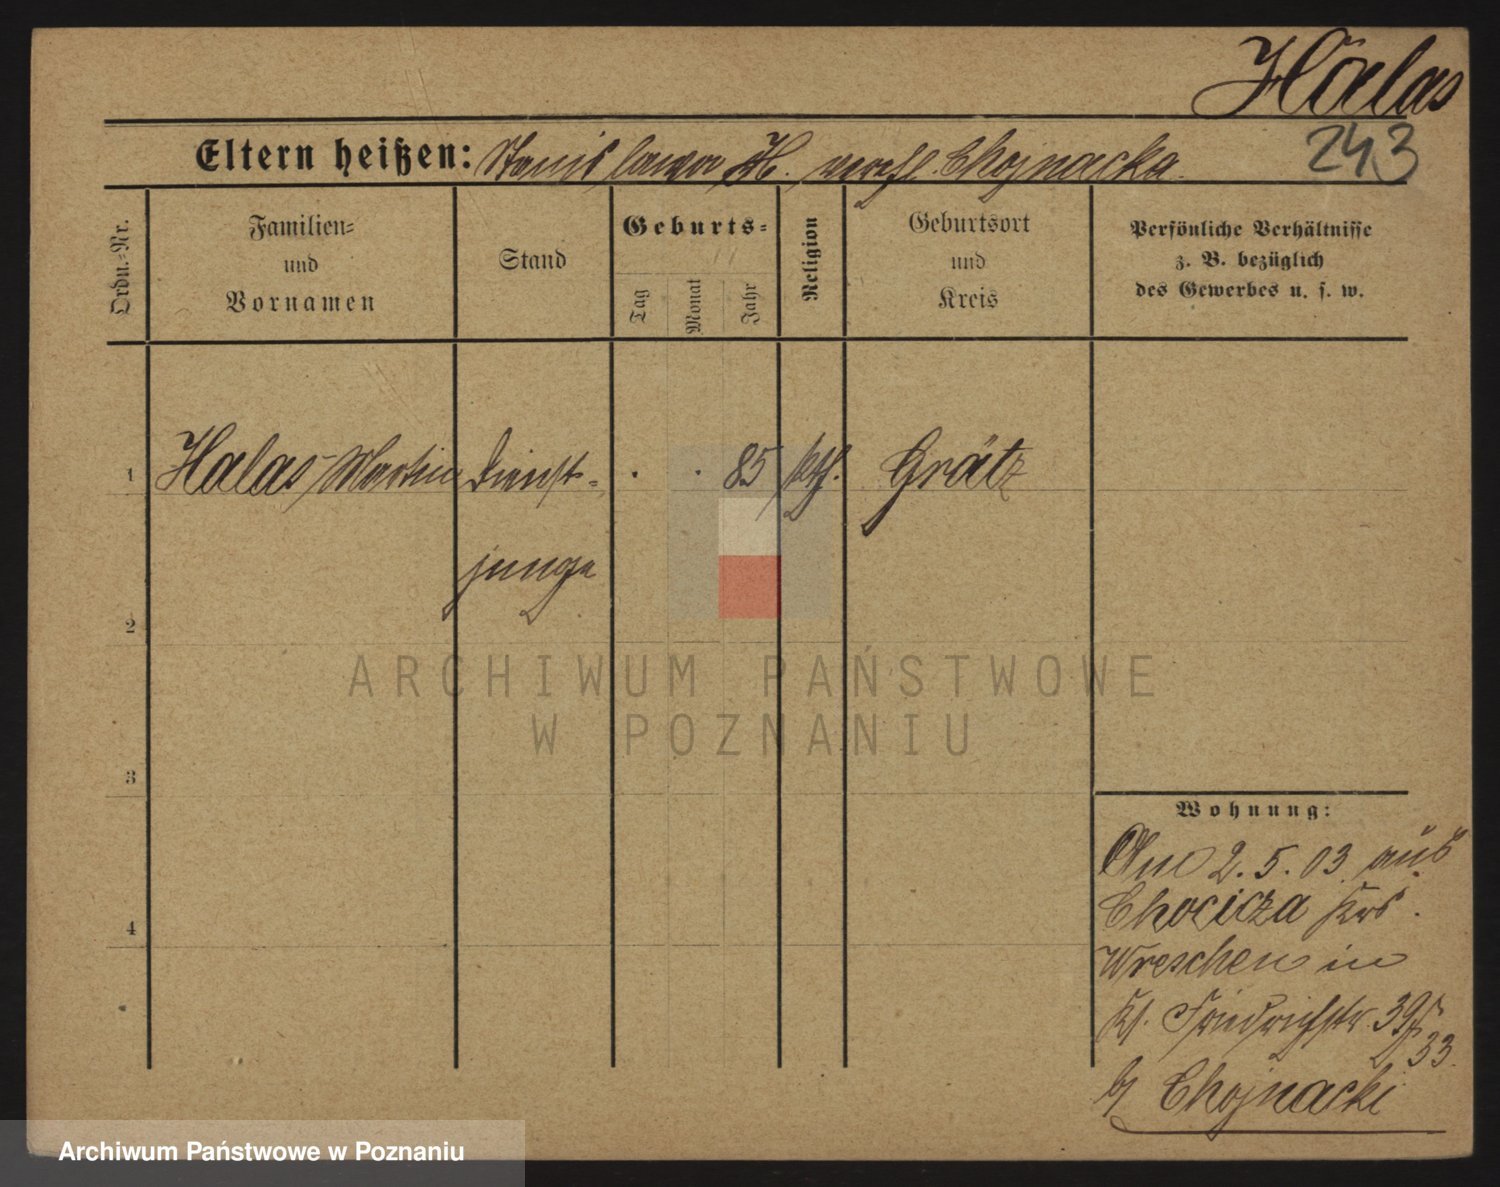 Halas
243
Eltern heißen: Stanislawa H. verehl. Chojnacka
Ordn.-Nr.
Familien-
und
Vornamen
Stand
Geburts-
Tag
Monat
Jahr
Religion
Geburtsort
und
Kreis
Persönliche Verhältnisse
z. B. bezüglich
des Gewerbes u. s. w.
1 Halas Martin Dienst- . . 85 kth. Grätz
junge
2
3
4
Wohnung:
Am 2.5.03 aus
Chocicza Krs.
Wreschen in
Kl. Friedrichstr. 39
33
b/ Chojnacki
ARCHIWUM PAŃSTWOWE
W POZNANIU
Archiwum Państwowe w Poznaniu